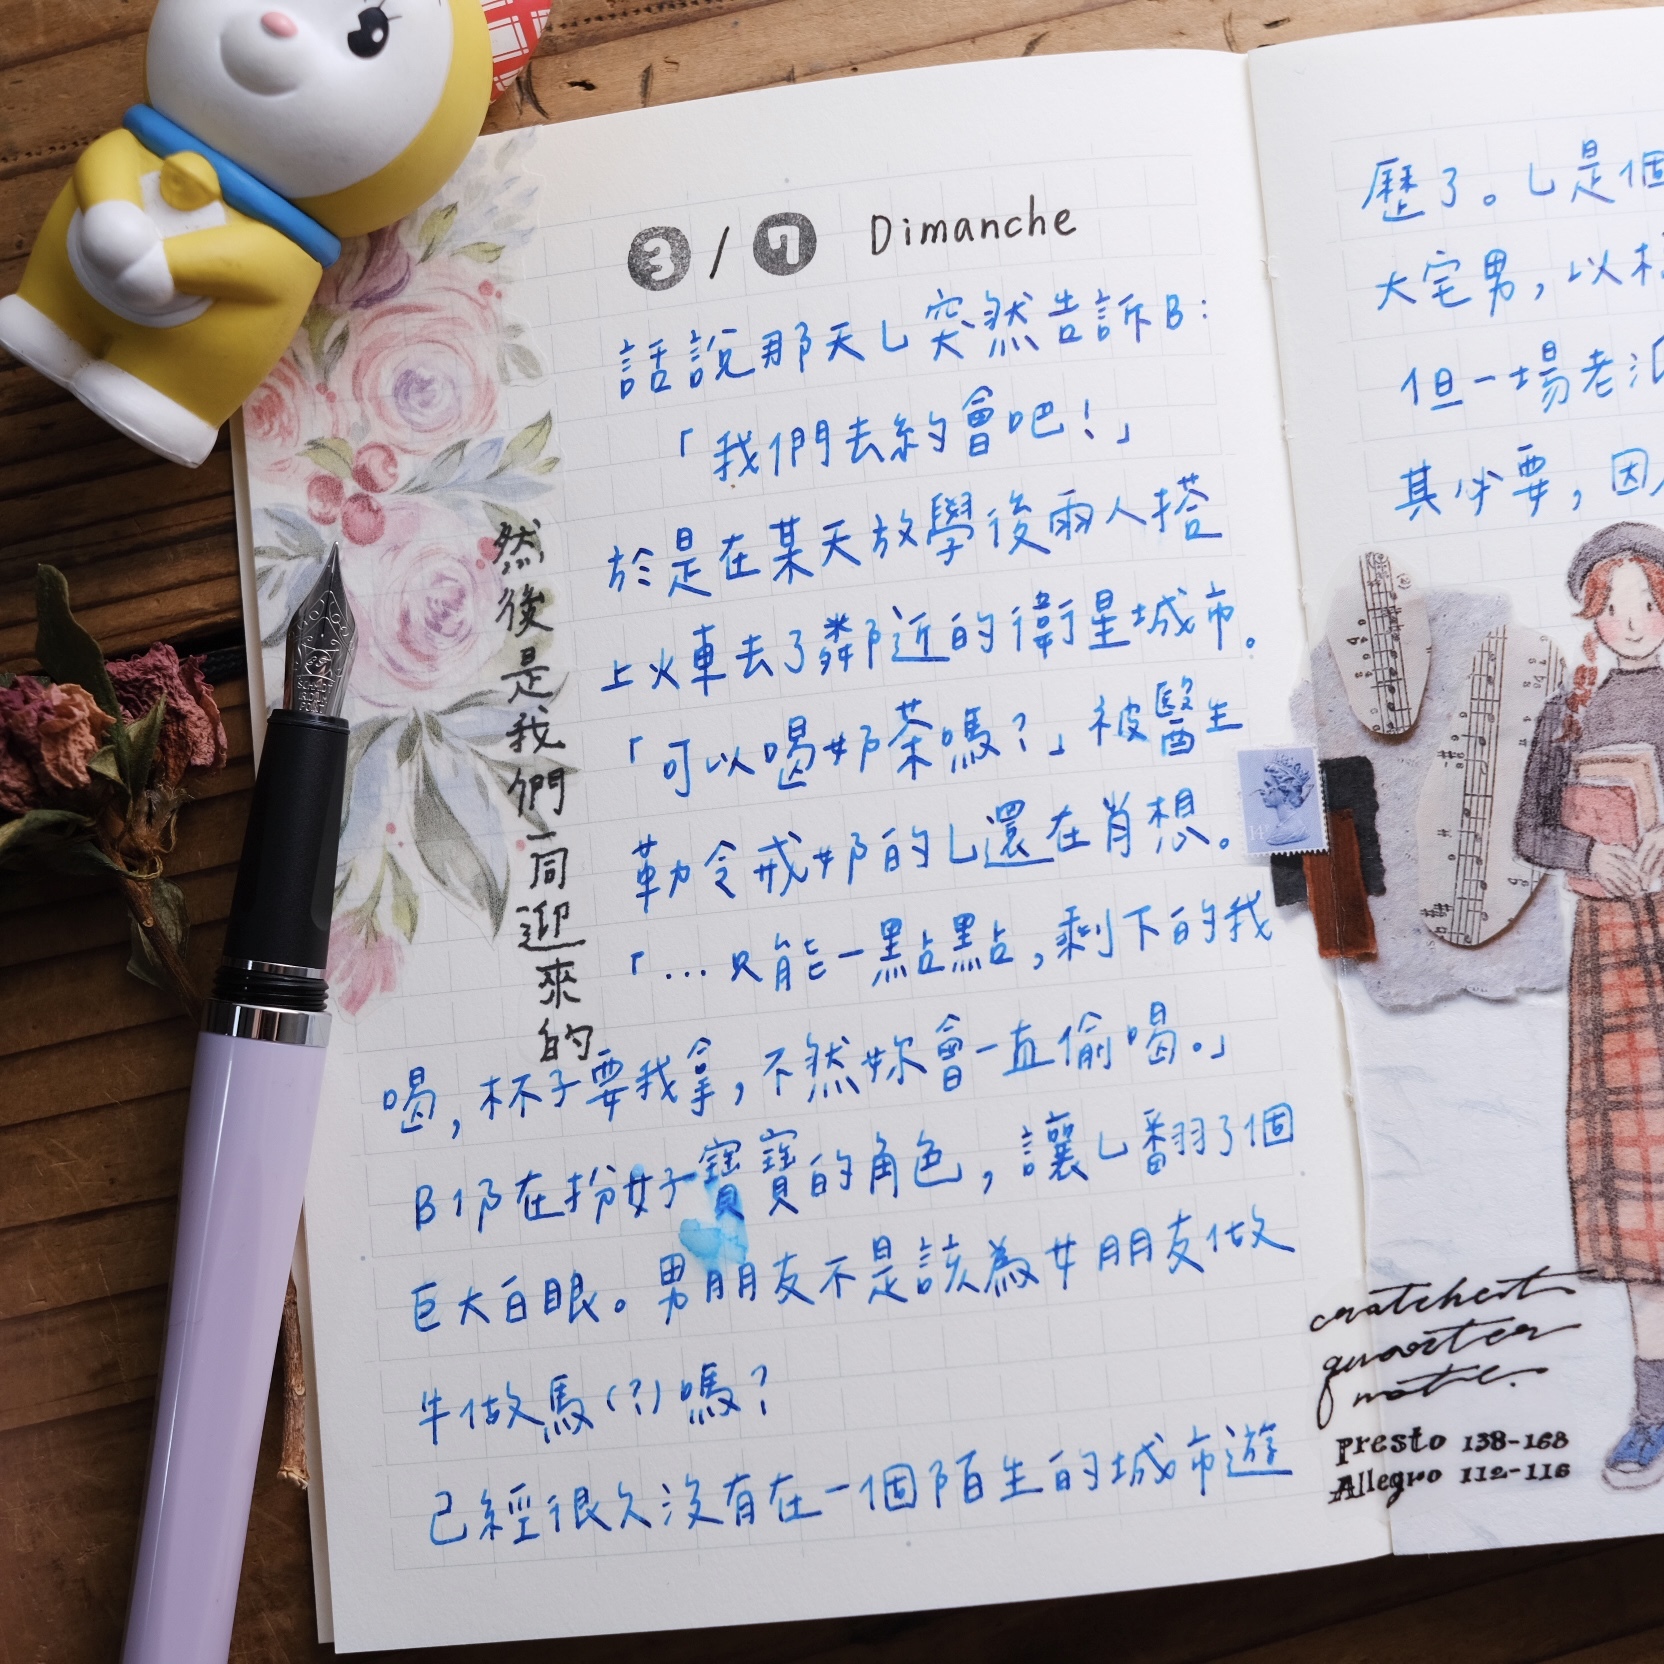 3/7 Dimanche
話說那天L突然告訴B：
「我們去約會吧！」
於是在某天放學後兩人搭
上火車去了鄰近的衛星城市。
「可以喝奶茶嗎？」被醫生
勒令戒奶的L還在肖想。
「...只能一點點，剩下的我
喝，杯子要我拿，不然妳會一直偷喝。」
B仍在扮好寶寶的角色，讓L翻了個
巨大白眼。男朋友不是該為女朋友做
牛做馬(?)嗎？
已經很久沒有在一個陌生的城市遊
然後是我們一同迎來的
歷了。L是個
大宅男，以
但一場老
其必要，因
cratchert
quarter
note.
Presto 138-168
Allegro 112-116